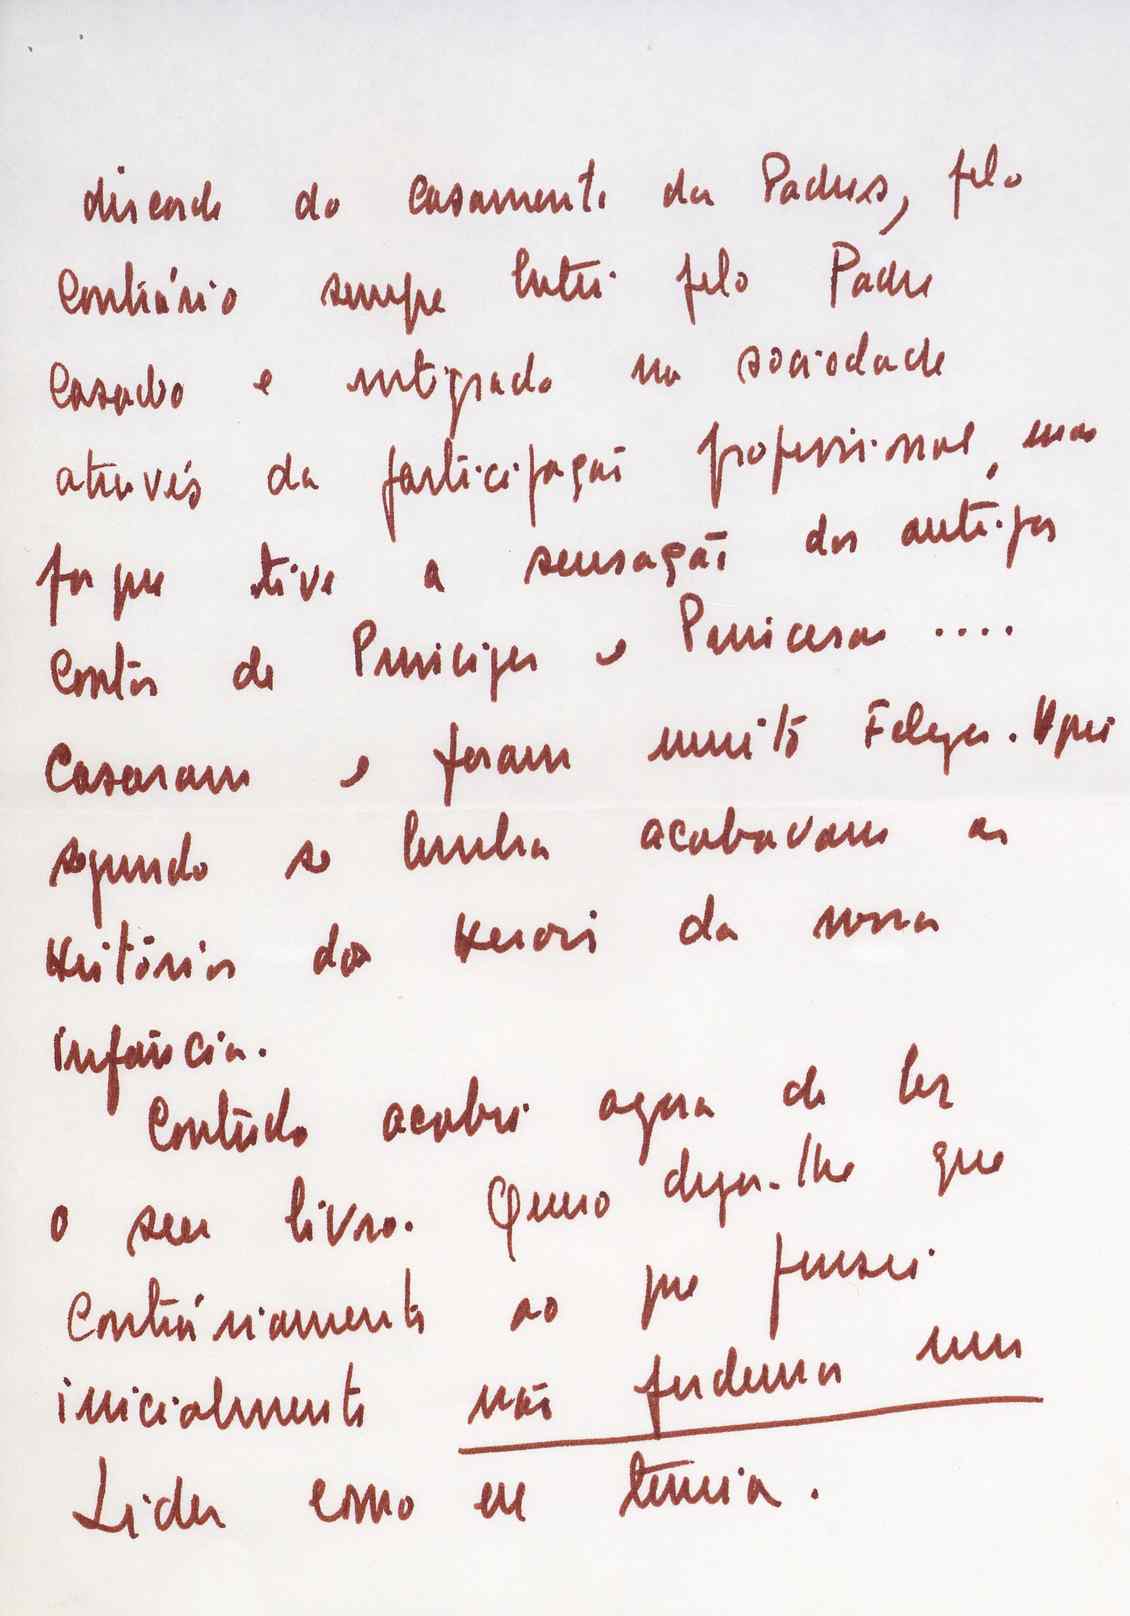 discorde do casamento da Padres, pelo
Contrário sempre lutei pelo Padre
Casado e integrado na sociedade
através da participação profissional, mas
porque tive a sensação dos antigos
Contos de Principes e Princesas ....
Casaram e foram muito Felizes. Aqui
segundo se lembra acabavam as
Histórias dos Herois da nossa
infância.
Contudo acabei agora de ler
o seu livro. Quero dizer-lhe que
Contráriamente ao que pensei
inicialmente não perdemos um
Lider como eu temia.